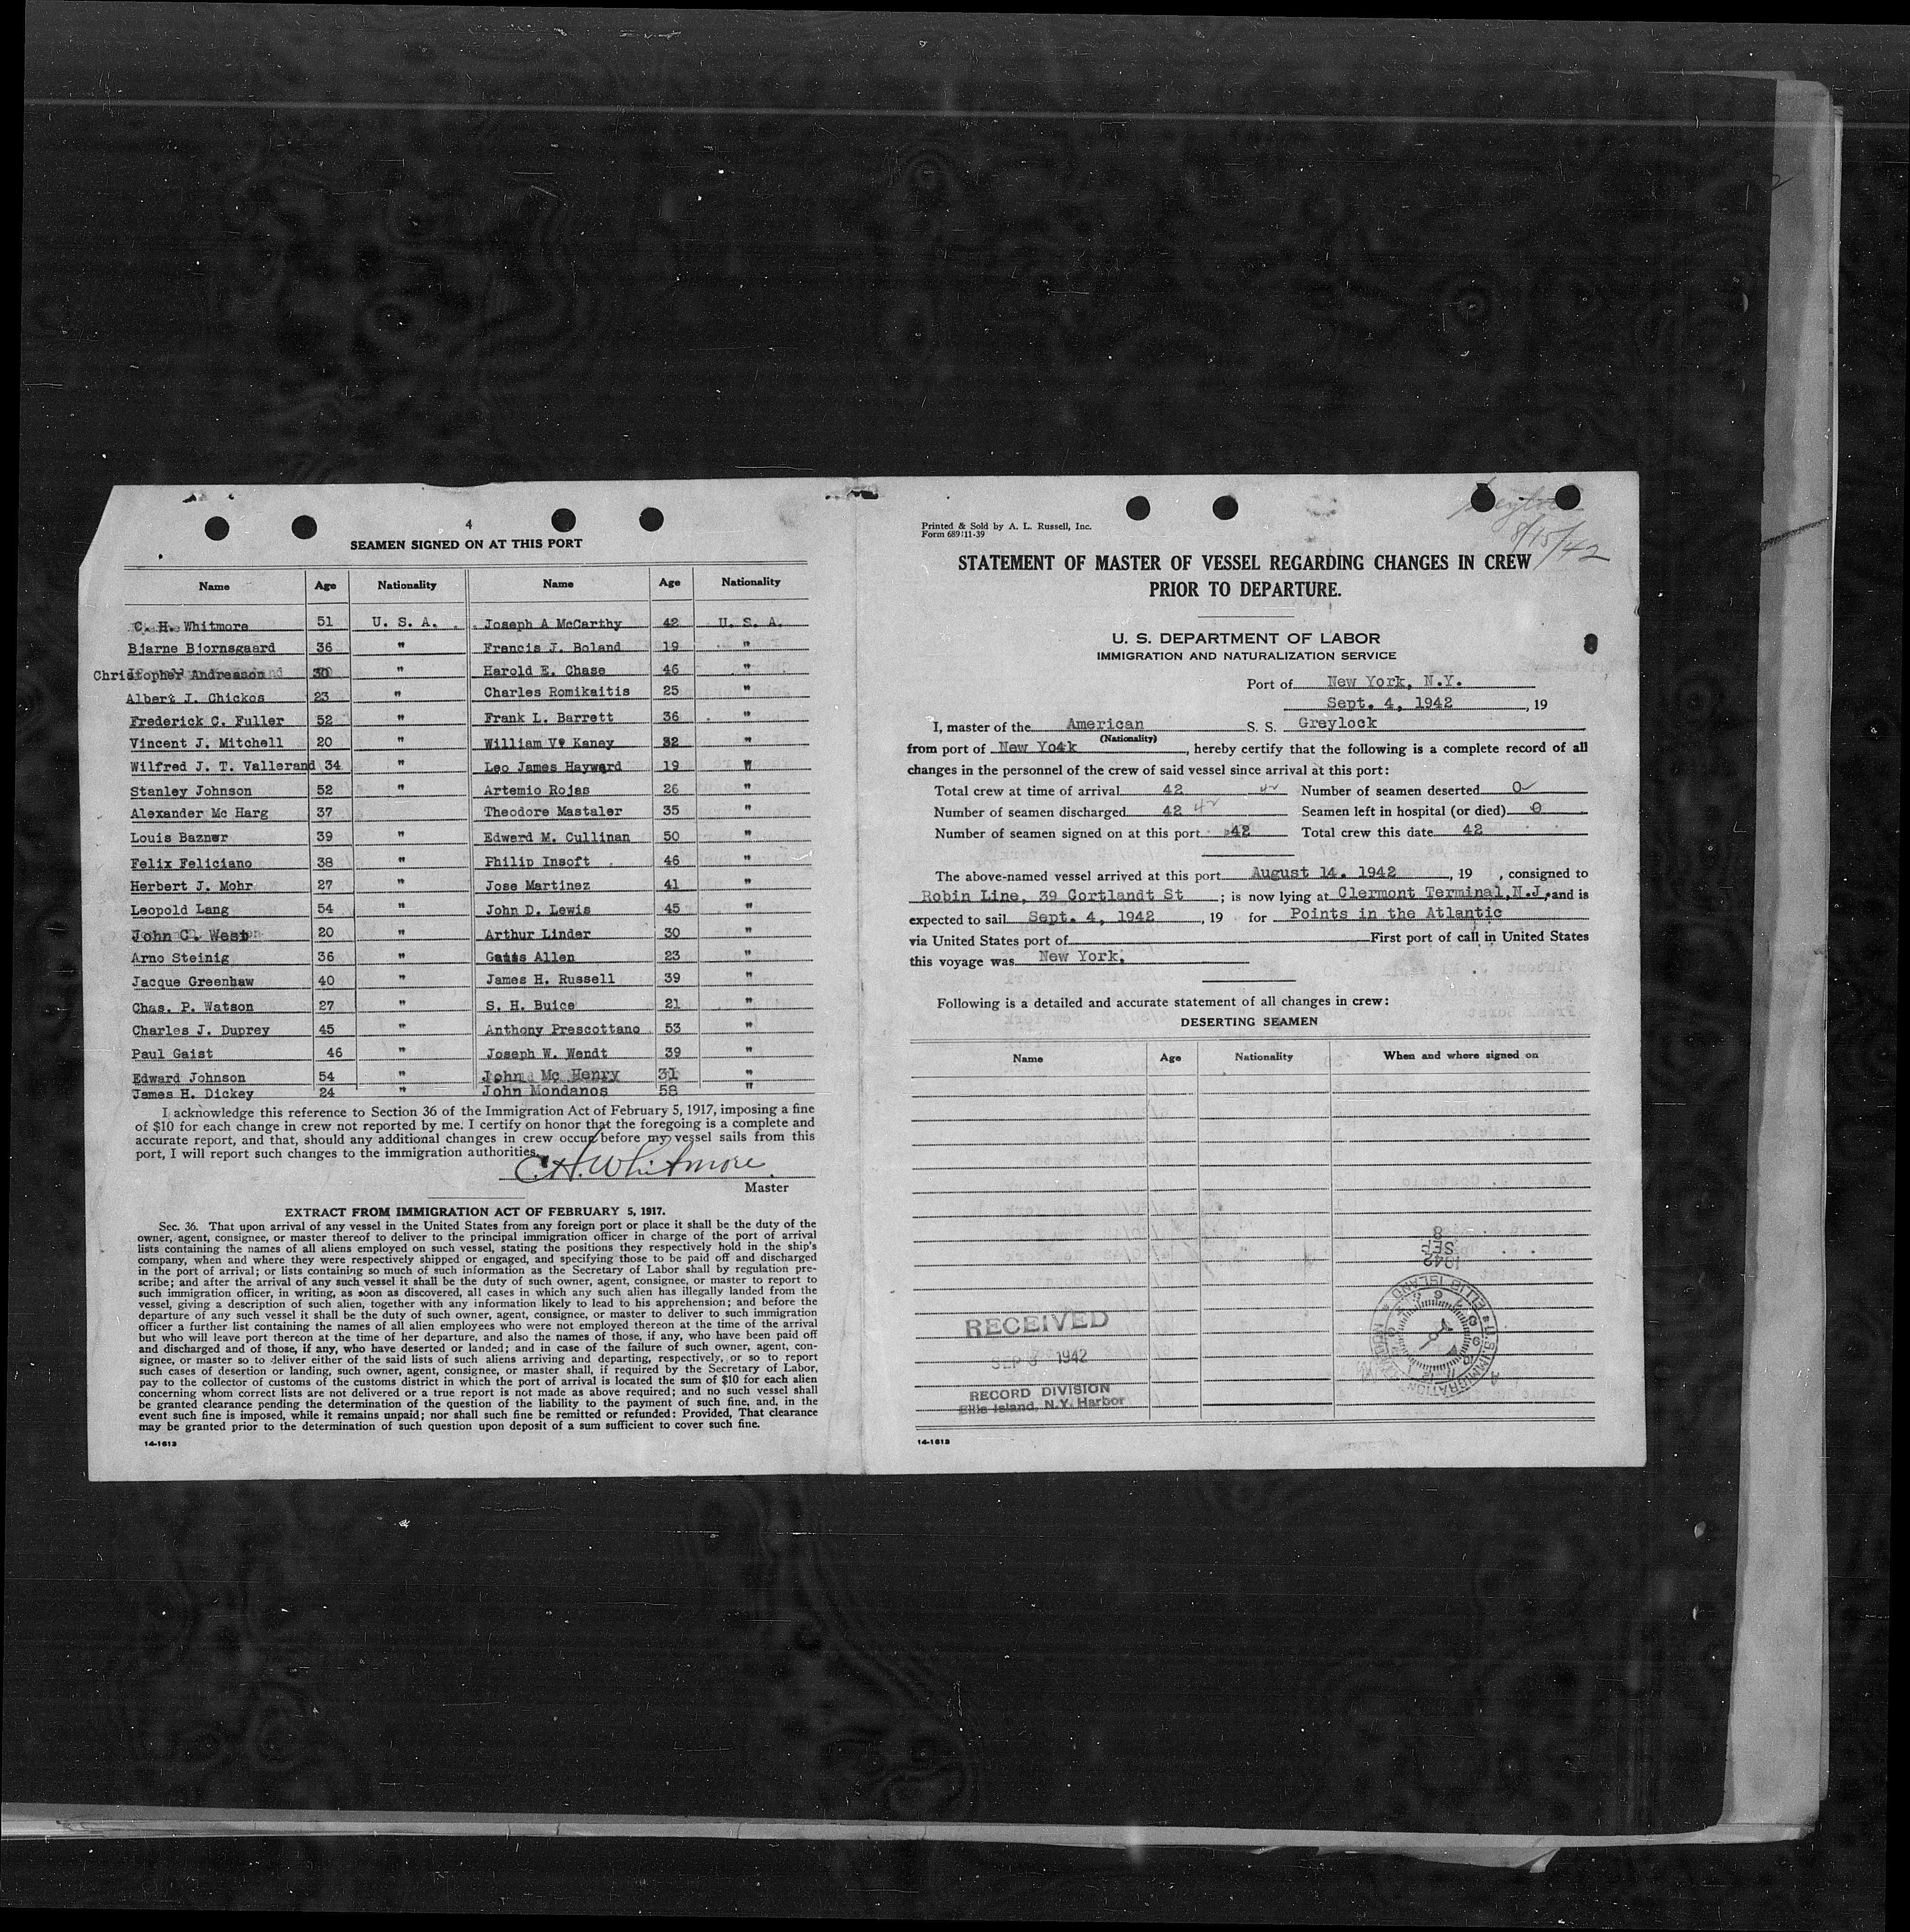 4
SEAMEN SIGNED ON AT THIS PORT
Name Age Nationality Name Age Nationality
C. H. Whitmore 51 U. S. A. Joseph A McCarthy 42 U. S. A.
Bjarne Bjornsgaard 36 " Francis J. Boland 19 "
Christopher Andreason 30 " Harold E. Chase 46 "
Albert J. Chickos 23 " Charles Romikaitis 25 "
Frederick C. Fuller 52 " Frank L. Barrett 36 "
Vincent J. Mitchell 20 " William V. Kaney 32 "
Wilfred J. T. Vallerand 34 " Leo James Hayward 19 "
Stanley Johnson 52 " Artemio Rojas 26 "
Alexander Mc Harg 37 " Theodore Mastaler 35 "
Louis Bazner 39 " Edward M. Cullinan 50 "
Felix Feliciano 38 " Philip Insoft 46 "
Herbert J. Mohr 27 " Jose Martinez 41 "
Leopold Lang 54 " John D. Lewis 45 "
John C. West 20 " Arthur Linder 30 "
Arno Steinig 36 " Allen 23 "
Jacque Greenhaw 40 " James H. Russell 39 "
Chas. P. Watson 27 " S. H. Buice 21 "
Charles J. Duprey 45 " Anthony Prescottano 53 "
Paul Gaist 46 " Joseph W. Wendt 39 "
Edward Johnson 54 " John Mc Henry 31 "
James H. Dickey 24 " John Mondanos 58 "
I acknowledge this reference to Section 36 of the Immigration Act of February 5, 1917, imposing a fine
of $10 for each change in crew not reported by me. I certify on honor that the foregoing is a complete and
accurate report, and that, should any additional changes in crew occur before my vessel sails from this
port, I will report such changes to the immigration authorities.
C. H. Whitmore
Master
EXTRACT FROM IMMIGRATION ACT OF FEBRUARY 5, 1917.
Sec. 36. That upon arrival of any vessel in the United States from any foreign port or place it shall be the duty of the
owner, agent, consignee, or master thereof to deliver to the principal immigration officer in charge of the port of arrival
lists containing the names of all aliens employed on such vessel, stating the positions they respectively hold in the ship's
company, when and where they were respectively shipped or engaged, and specifying those to be paid off and discharged
in the port of arrival; or lists containing so much of such information as the Secretary of Labor shall by regulation pre-
scribe; and after the arrival of any such vessel it shall be the duty of such owner, agent, consignee, or master to report to
such immigration officer, in writing, as soon as discovered, all cases in which any such alien has illegally landed from the
vessel, giving a description of such alien, together with any information likely to lead to his apprehension; and before the
departure of any such vessel it shall be the duty of such owner, agent, consignee, or master to deliver to such immigration
officer a further list containing the names of all alien employees who were not employed thereon at the time of the arrival
but who will leave port thereon at the time of her departure, and also the names of those, if any, who have been paid off
and discharged and of those, if any, who have deserted or landed; and in case of the failure of such owner, agent, con-
signee, or master so to deliver either of the said lists of such aliens arriving and departing, respectively, or so to report
such cases of desertion or landing, such owner, agent, consignee, or master shall, if required by the Secretary of Labor,
pay to the collector of customs of the customs district in which the port of arrival is located the sum of $10 for each alien
concerning whom correct lists are not delivered or a true report is not made as above required; and no such vessel shall
be granted clearance pending the determination of the question of the liability to the payment of such fine, and, in the
event such fine is imposed, while it remains unpaid; nor shall such fine be remitted or refunded: Provided, That clearance
may be granted prior to the determination of such question upon deposit of a sum sufficient to cover such fine.
14-1613
Greylock
8/15/42
Printed & Sold by A. L. Russell, Inc.
Form 689:11-39
STATEMENT OF MASTER OF VESSEL REGARDING CHANGES IN CREW
PRIOR TO DEPARTURE.
U. S. DEPARTMENT OF LABOR
IMMIGRATION AND NATURALIZATION SERVICE
Port of New York, N.Y.
Sept. 4, 1942, 19
I, master of the American S. S. Greylock
(Nationality)
from port of New Yo4k, hereby certify that the following is a complete record of all
changes in the personnel of the crew of said vessel since arrival at this port:
Total crew at time of arrival 42 42 Number of seamen deserted 0
Number of seamen discharged 42 42 Seamen left in hospital (or died) 0
Number of seamen signed on at this port 42 Total crew this date 42
The above-named vessel arrived at this port August 14. 1942, 19 , consigned to
Robin Line, 39 Cortlandt St ; is now lying at Clermont Terminal, N.J. and is
expected to sail Sept. 4, 1942, 19 for Points in the Atlantic
via United States port of First port of call in United States
this voyage was New York.
Following is a detailed and accurate statement of all changes in crew:
DESERTING SEAMEN
Name Age Nationality When and where signed on
8
SEP
1942
U.S. IMMIGRATION
ELLIS ISLAND
RECEIVED
SEP 8 1942
RECORD DIVISION
Ellis Island, N.Y. Harbor
14-1613